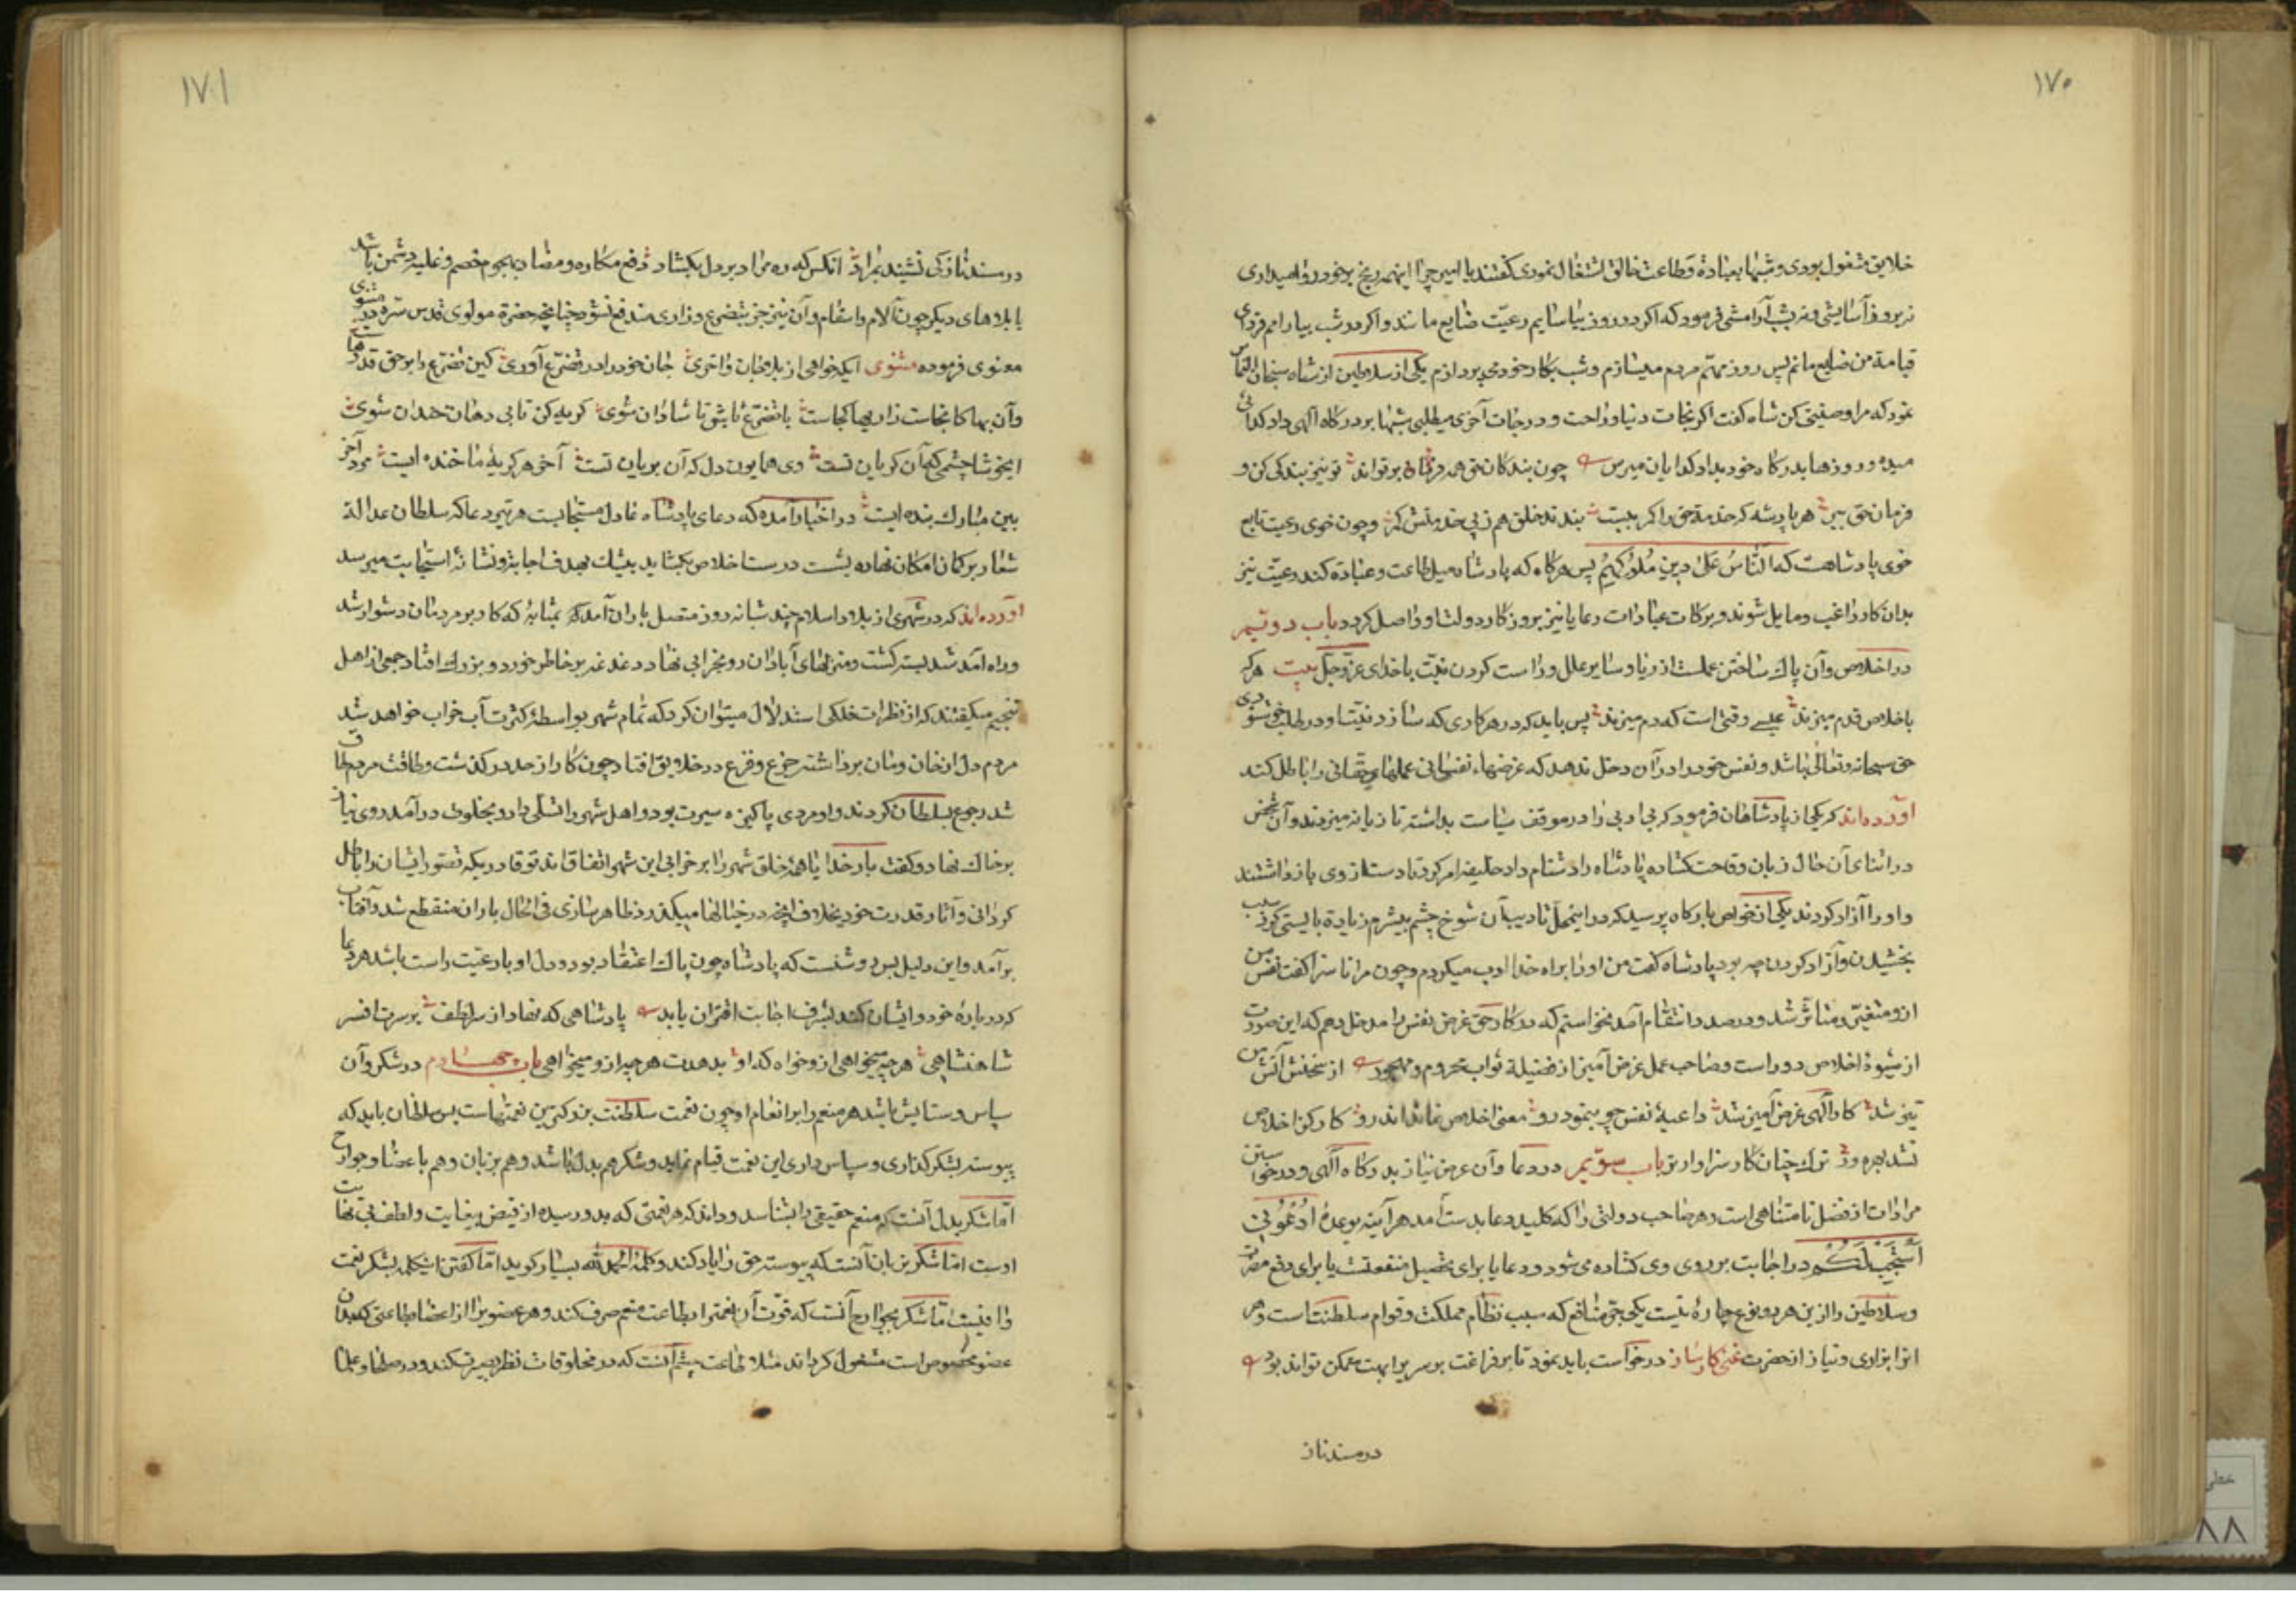 ۱۷۰
خلایق مشغول بودی و شبها بعبادة و طاعت خالق اشتغال نمودی گفتند یا امیر چرا اینهمه رنج بر خود روا میداری
نه بروز آسایشی و نه بشب آرامشی فرمود که اگر در روز بیاسایم رعیّت ضایع مانند و اگر در شب بیارامم فردای
قیامة من ضایع مانم پس روز مهمّ مردم میسازم و شب بکار خود می پردازم یکی از سلاطین از شاه سنجان التماس
نمود که مرا وصیتی کن شاه گفت اگر نجات دنیا و راحت و درجات آخری میطلبی شبها بر درکاه الهی داد کدائی
میده و روزها بدرکاه خود بداد کدایان میرس چون بندکان حق همه فرمان بر تواند تو نیز بندکی کن و
فرمان حق ببین هر پادشه که خدمة حق را کمر ببست بندند خلق هم ز پی خدمتش کمر و چون خوی رعیت تابع
خوی پادشاهست که اَلنّاسُ عَلیٰ دینِ مُلُوکِهِمْ پس هرکاه که پادشاه میل طاعت و عبادة کند رعیّت نیز
بدان کار راغب و مایل شوند و برکات عبادات رعایا نیز بروزکار دولت او واصل کردد باب دویّم
در اخلاص و آن پاک ساختن عملست از ریا و سایر علل و راست کردن نیّت با خدای عزّ و جلّ بیت هر که
باخلاص قدم میزند عیسی وقتی است که دم میزند پس باید که در هر کاری که سازد نیّت او در طلب خوشنودی
حق سبحانه و تعالیٰ باشد و نفس خود را در آن دخل ندهد که غرضهاء نفسانی عملهای حقّانی را باطل کند
آورده‌اند که یکی از پادشاهان فرمود که بی ادبی را در موقف سیاست بداشته تازیانه میزدند و آن شخص
در اثنای آن حال زبان وقاحت کشاده پادشاه را دشنام داد خلیفه امر کرد تا دست از وی بازداشتند
و او را آزاد کردند یکی از خواص بارکاه پرسید که در اینمحلّ تادیب آن شوخ چشم بیشرم زیادة بایستی کرد سبب
بخشیدن و آزاد کردن چه بود پادشاه کفت من او را براه خدا ادب میکردم و چون مرا ناسزا کفت نفس من
ازو متغیّر و متاثّر شد و در صدد انتقام آمد نخواستم که در کار حق غرض نفس را مدخل دهم که این صورت
از شیوهٔ اخلاص دور است و صاحب عمل غرض آمیز از فضیلة ثواب محروم و مهجور از سخنش آتش من
تیز شد کار الهی غرض آمیز شد داعیهٔ نفس چو بنمود رو معنی اخلاص نماند اندرو کار کز اخلاص
نشد بهره ور ترک چنان کار سزاوارتر باب سوّیم در دعا و آن عرض نیاز بدرکاه آلهی و درخواستن
مرادات از فضل نامتناهی است و هر صاحب دولتی را که کلید دعا بدست آمد هر آینه بوعدهٔ اُدْعُونی
اَسْتَجِبْ لَکُمْ در اجابت بر روی وی کشاده می شود و دعا یا برای تحصیل منفعتست یا برای دفع مضرت
و سلاطین را ازین هر دو نوع چارهٔ نیست یکی جمع منافع که سبب نظام مملکت و قوام سلطنت است و هر
انرا بزاری و نیاز از حضرت غنی کارساز درخواست باید نمود تا بر فراغت بر سریر ابهت ممکن تواند بود
در مسند ناز
۱۷۱
در مسند ناز کی نشیند بمراد انکس که ره مراد بر دل بکشاد دفع مکاره و مضار هجوم خصم و غلبه دشمن باشد
یا بلاهای دیکر چون آلام و اسقام و آن نیز جز بتضرع و زاری مندفع نشود چنانچه حضرة مولوی قدس سرّه در مثنوی
معنوی فرموده مثنوی ایکه خواهی از بلا جان واخری جان خود را در تضرّع آوری کین تضرّع را بر حق قدرهاست
وآن بها کانجاست زاریها کجاست با تضرّع باش تا شادان شوی کریه کن تا بی دهان خندان شوی
ایخوشا چشمی که آن کریان تست وی همایون دل که آن بریان تست آخر هر کریهٔ ما خنده ایست مرد آخر
بین مبارک بنده ایست در اخبار آمده که دعای پادشاه عادل مستجابست هر تیر دعا که سلطان عدالة
شعار بر کمان امکان نهاده بشست درست اخلاص بکشاید بیشک بهدف اجابة و نشانهٔ استجابت میرسد
آورده‌اند که در شهری از بلاد اسلام چند شبانه روز متصل باران آمد بمثابهٔ که کار بر مردمان دشوار شد
و راه آمد شد بسته کشت و منزلهای آبادان رو بخرابی نهاد دغدغه بر خاطر خورد و بزرک افتاد جمعی از اهل
تنجیم میکفتند که از نظرات فلکی استدلال میتوان کرد که تمام شهر بواسطهٔ کثرت آب خراب خواهد شد
مردم دل از خان و مان برداشته جزع و فزع در خلایق افتاد چون کار از حد در کذشت و طاقت مردم طاق
شد رجوع بسلطان کردند و او مردی پاکیزه سیرت بود و اهل شهر را تسلّی داد و بخلوت درآمد روی نیاز
بر خاک نهاد و کفت بارخدایا همهٔ خلق شهر را بر خرابی این شهر اتفاق اند تو قادری که تصوّر ایشان را باطل
کردانی و آثار قدرت خود بخلاف انچه در خیالها میکذرد ظاهر سازی فی الحال باران منقطع شد و آفتاب
برآمد و این دلیل بس روشنست که پادشاه چون پاک اعتقاد بود و دل او با رعیّت راست باشد هر دعا
که در بارهٔ خود و ایشان کند بشرف اجابت اقتران یابد پادشاهی که نهاد از سر لطف بر سرت افسر
شاهنشاهی هر چه میخواهی ازو خواه که او بدهدت هر چه ازو میخواهی باب چهارم در شکر و آن
سپاس و ستایش باشد هر منعم را بر انعام او چون نعمت سلطنت بزرکترین نعمتهاست پس سلطان باید که
پیوسته بشکر کذاری و سپاس داری این نعمت قیام نماید و شکر هم بدل باشد و هم بزبان و هم باعضا و جوارح
امّا شکر بدل آنست که منعم حقیقی را بشناسد و داند که هر نعمتی که بدو رسیده از فیض بیغایت و لطف بی نهایت
اوست امّا شکر بزبان آنست که پیوسته حق را یاد کند و کلمهٔ الحمدلله بسیار کوید امّا کفتن اینکلمه بشکر نعمت
وافیست امّا شکر بجوارح آنست که قوّت آن نعمترا بطاعت منعم صرف کند و هر عضویرا از اعضا بطاعتی که بدان
عضو مخصوص است مشغول کرداند مثلا طاعت چشم آنست که در مخلوقات نظر بعبرت کند و در صلحا و علما